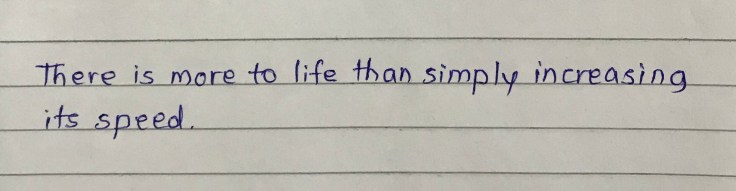 There is more to life than simply increasing
its speed.